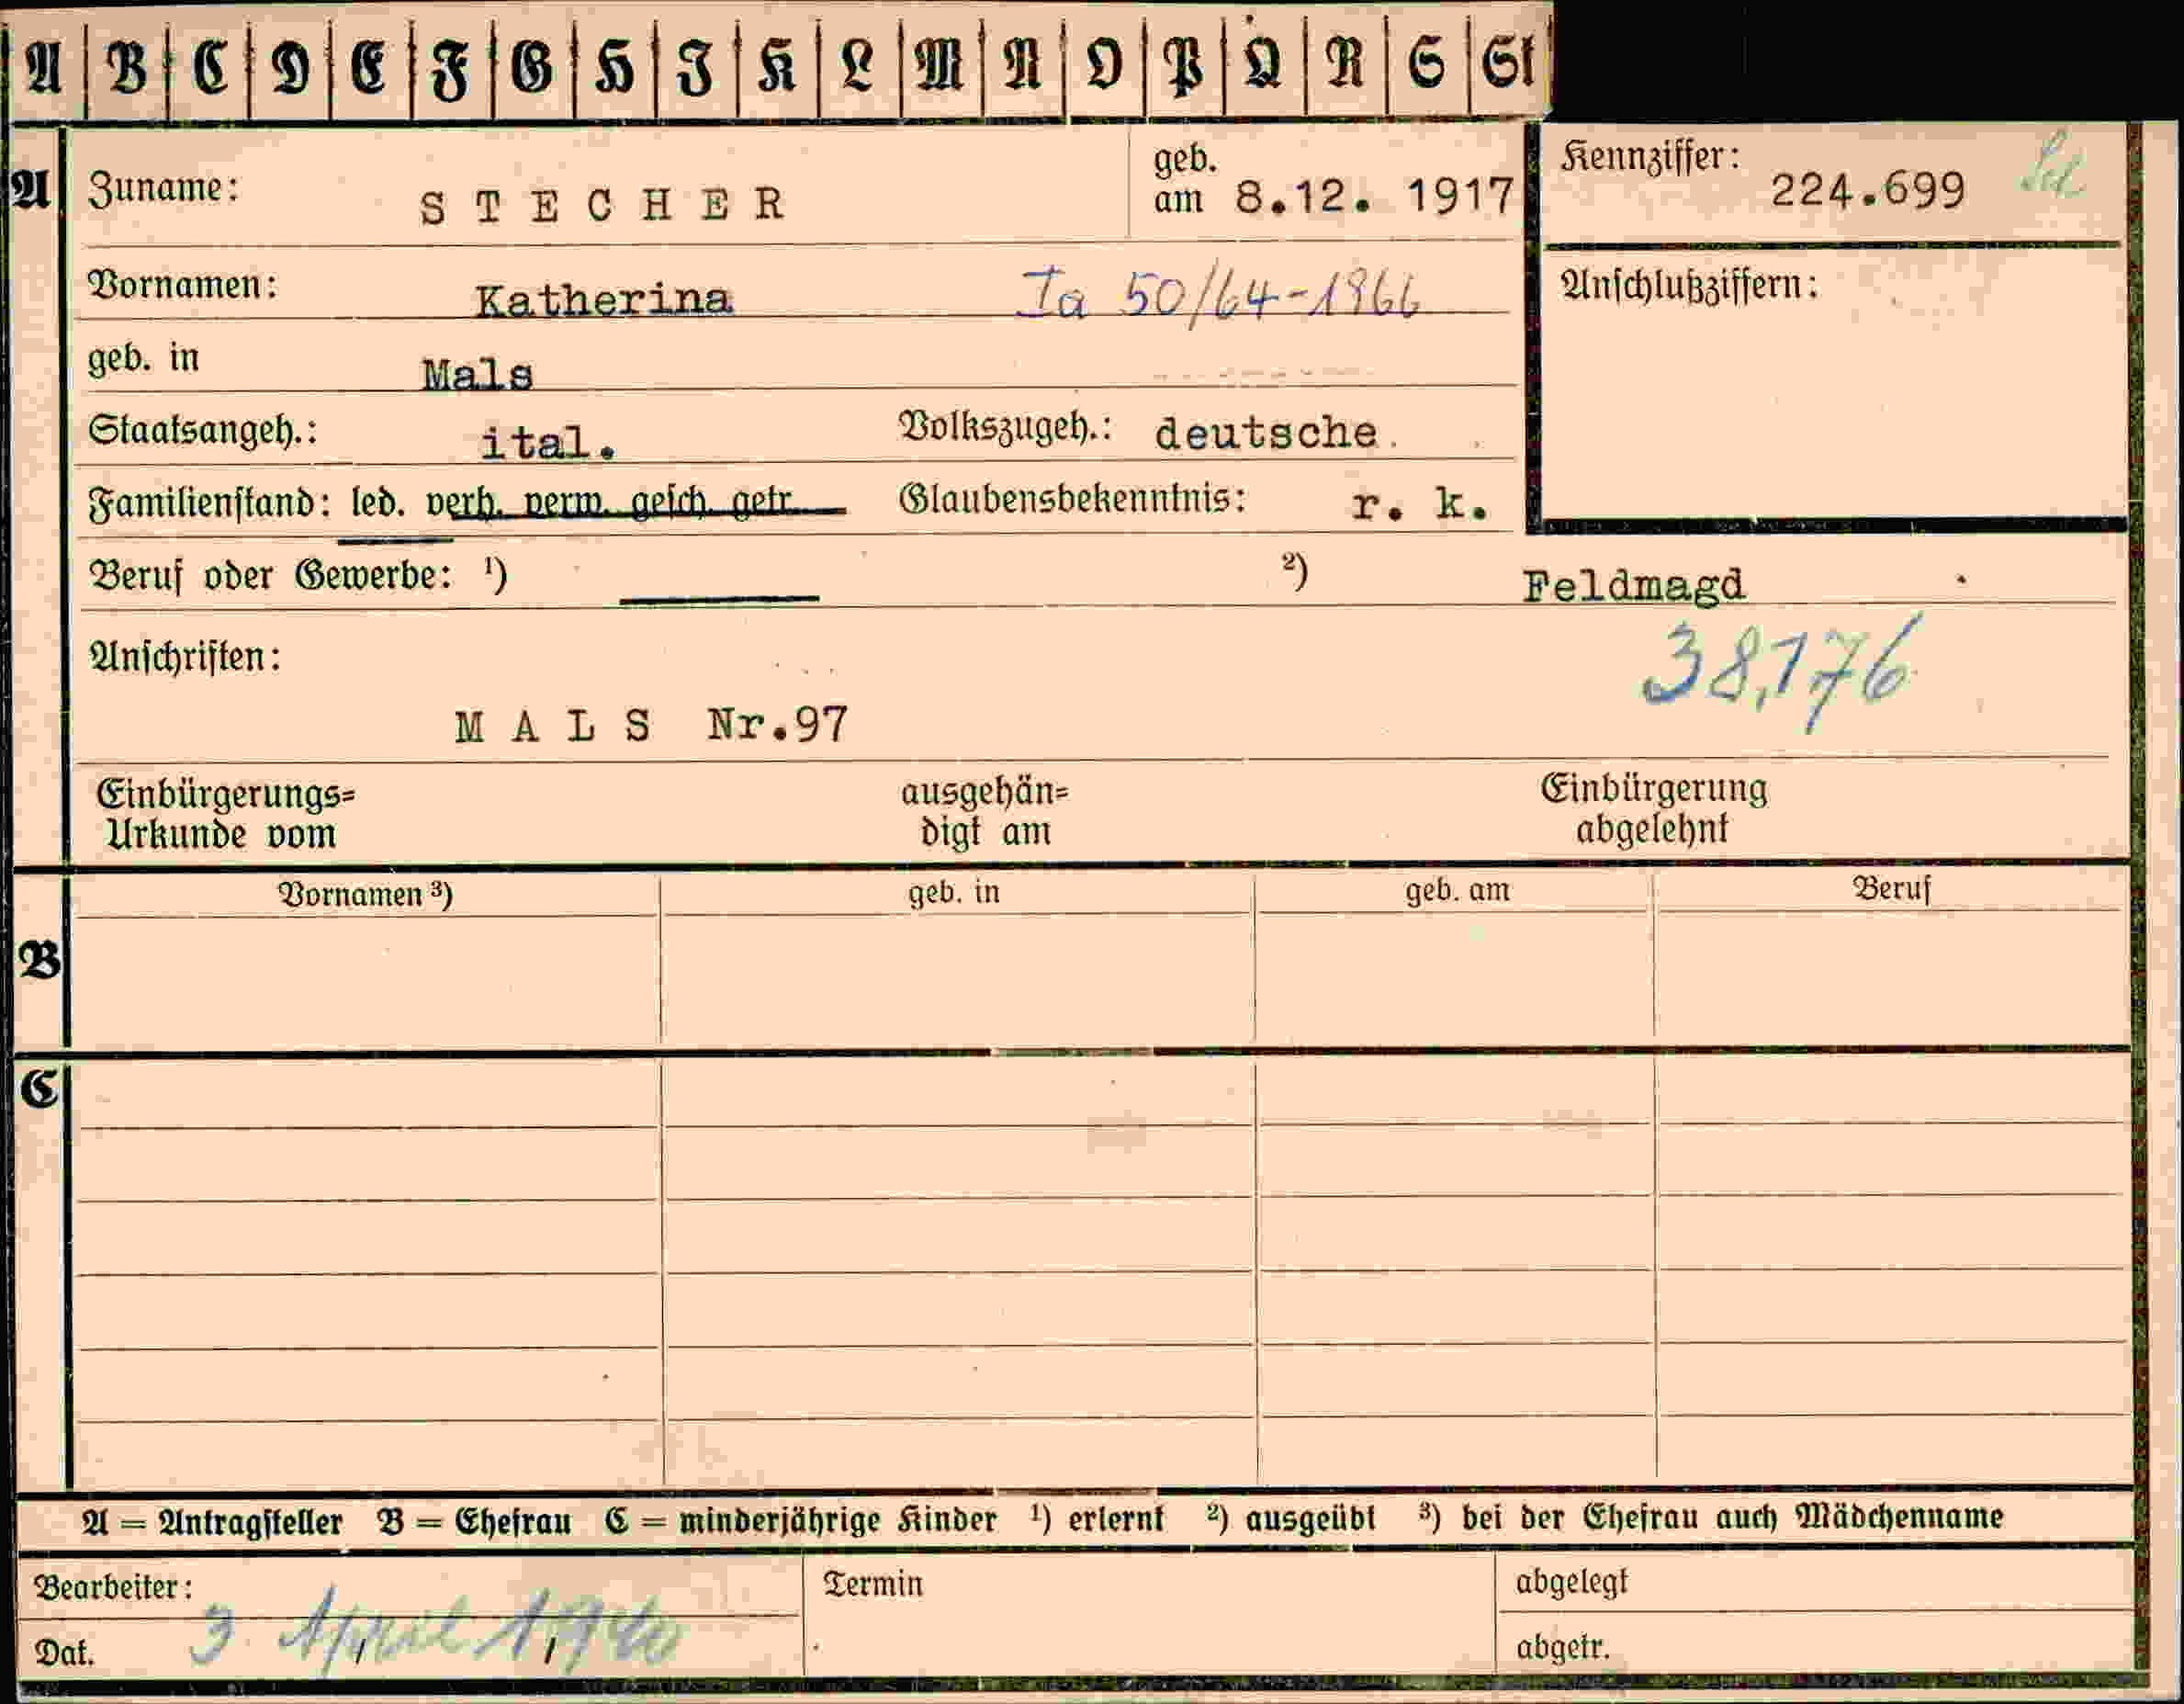 A B C D E F G H J K L M N O P Q R S St
A Zuname: STECHER geb. am 8.12. 1917 Kennziffer: 224.699
Vornamen: Katherina Ia 50/64-1966 Anschlußziffern:
geb. in Mals
Staatsangeh.: ital. Volkszugeh.: deutsche.
Familienstand: led. verh. verw. gesch. getr. Glaubensbekenntnis: r. k.
Beruf oder Gewerbe: ¹) ²) Feldmagd
Anschriften: 38.176
MALS Nr.97
Einbürgerungs= ausgehän= Einbürgerung
Urkunde vom digt am abgelehnt
Vornamen ³) geb. in geb. am Beruf
B
C
A = Antragsteller B = Ehefrau C = minderjährige Kinder ¹) erlernt ²) ausgeübt ³) bei der Ehefrau auch Mädchenname
Bearbeiter: Termin abgelegt
Dat. 3. April 1940 abgetr.